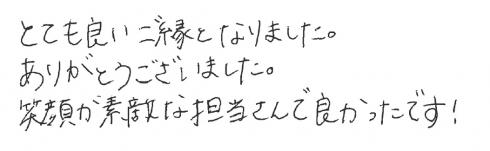 とても良いご縁となりました。
ありがとうございました。
笑顔が素敵な担当さんで良かったです!